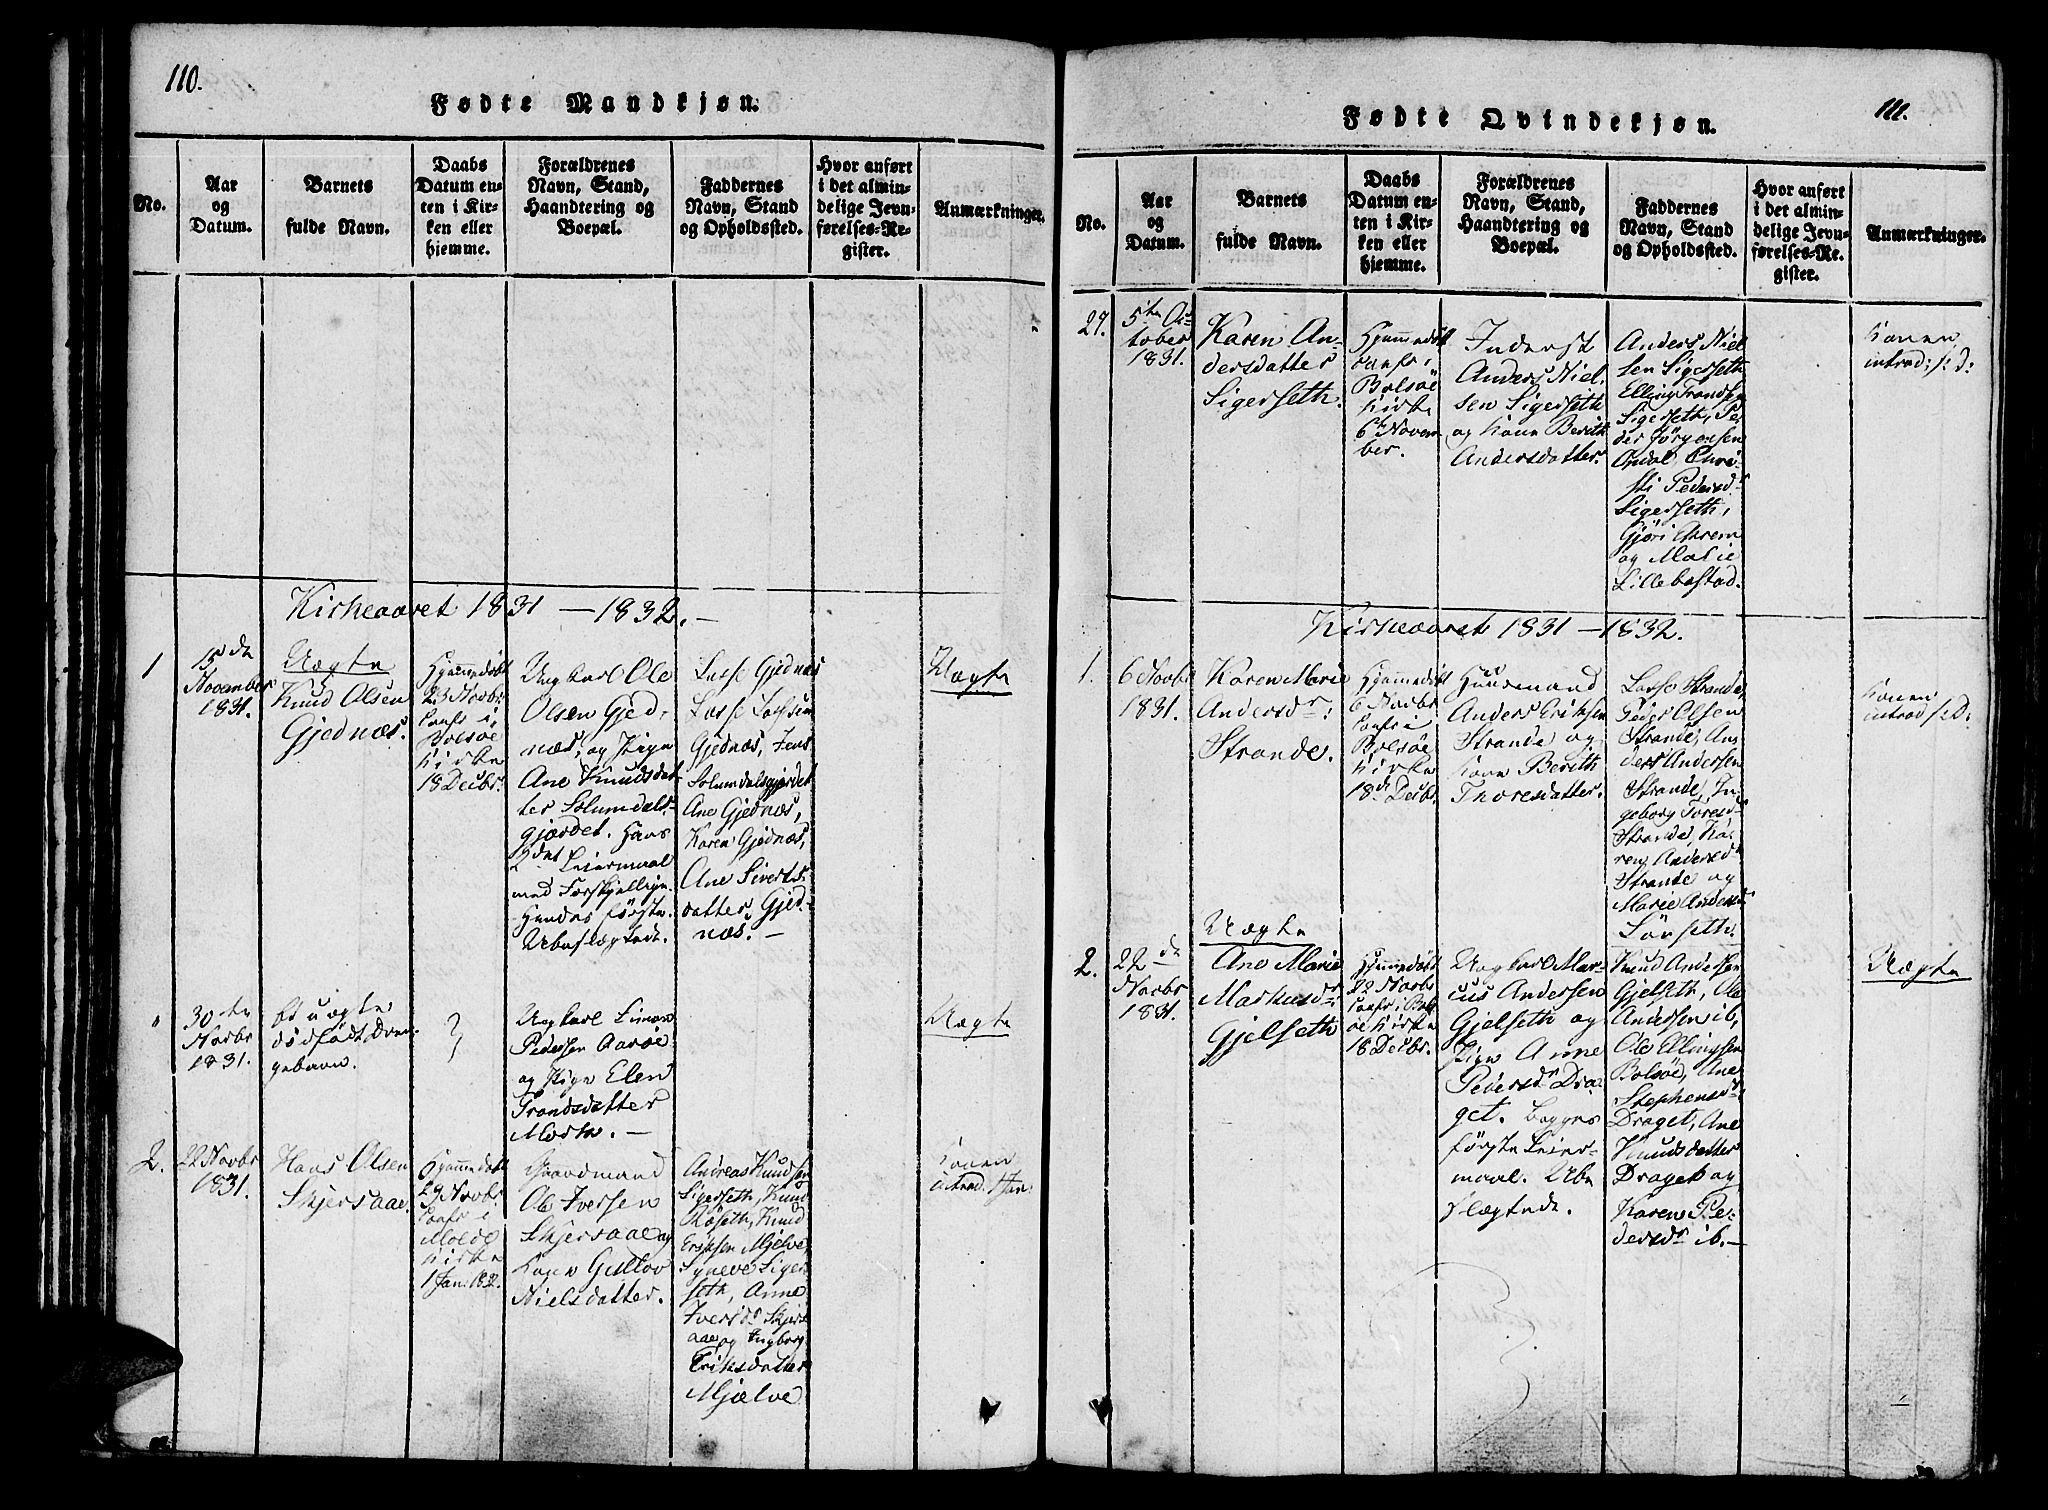 110.
Fødte Mandkjøn.
No.
Aar
og
Datum.
Barnets
fulde Navn.
Daabs
Datum en-
ten i Kir-
ken eller
hjemme.
Forældrenes
Navn, Stand,
Haandtering og
Boepæl.
Faddernes
Navn, Stand
og Opholdssted.
Hvor anført
i det almin-
delige Jevn-
førelses-Re-
gister.
Anmærkninger.
Kirkeaaret 1831 — 1832. —
1
15de
November
1831.
Uægte
Knud Olsen
Gjednæs.
Hjemmedøbt
23 Novbr
Confr i
Bolsøe
Kirke
18 Decbr.
Ungkarl Ole
Olsen Gjed,
næs, og Pigen
Ane Knudsdat-
ter Solumdals-
gjærdet. Hans
2det Leiermaal
med Forskjellige.
Hendes første.
Ubeslægtede.
Lasse Gjednæs
Lasse Lassen
Gjednæs, Jens
Solumdalsgjærdet
Ane Gjednæs,
Karen Gjednæs,
Ane Siverts-
datter Gjed-
næs. —
Uægte
"
30te
Novbr
1831.
Et uægte
dødfødt Dren-
gebarn.
Ungkarl Simon
Pedersen Aarøe
og Pige Elen
Trondsdatter
Mork. —
Uægte
2.
22 Novbr
1831.
Hans Olsen
Skjersaae.
Hjemmedøbt
29 Novbr
Confr i
Molde
Kirke
1 Jan: 1832.
Gaardmand
Ole Iversen
Skjersaae og
Kone Gulløv
Nielsdatter.
Andreas Knudsen
Sigerseth, Knud
Røseth, Knud
Eriksen Mjelve,
Syneve Siger
seth, Anne
Iversdr Skjers
aae og Ingborg
Eriksdatter
Mjælve
Konen
introd: 1 Jan:
111.
Fødte Qvindekjøn.
No.
Aar
og
Datum.
Barnets
fulde Navn.
Daabs
Datum en-
ten i Kir-
ken eller
hjemme.
Forældrenes
Navn, Stand,
Haandtering og
Boepæl.
Faddernes
Navn, Stand
og Opholdssted.
Hvor anført
i det almin-
delige Jevn-
førelses-Re-
gister.
Anmærkninger.
29.
5te Oc-
tober
1831.
Karen An-
dersdatter
Sigerseth.
Hjemmedøbt
Confr i
Bolsøe
Kirke
6te Novem
ber.
Inderst
Anders Niel-
sen Sigerseth
og Kone Berith
Andersdatter.
Anders Niel
sen Sigerseth
Elling Trondsen
Sigerseth, Pe-
der Jørgensen
Opdal,
sti Pedersdr
Sigerseth,
Gjøri
og Malie
Lillebostad.
Konen
introd: s: D:
Kirkeaaret 1831 — 1832.
1.
6 Novbr
1831.
Karen Marie
Andersdr:
Strande.
Hjemmedøbt
6 Novbr
Confr i
Bolsøe
Kirke
18de Decbr.
Huusmand
Anders Eriksen
Strande og
Kone Berith
Thoresdatter.
Lasse Strande,
Peder Olsen
Strande, An-
ders Andersen
Strande, In-
geborg Toresdr
Strande, Ka-
ren Andersdr
Strande og
Marie Andersdr
Lønseth.
Konen
introd s: D:
2.
22de
Novbr
1831.
Uægte
Ane Marie
Markusdr:
Gjelseth
Hjemmedøbt
22 Novbr
Confr i Bols
øe Kirke
18 Decbr.
Ungkarl Mar-
cus Andersen
Gjelseth og
Pige Anne
Pedersdr Dra-
get. Begges
første Leier-
maal. Ube
slægtede.
Knud Andersen
Gjelseth, Ole
Andersen ib,
Ole Ellingsen
Bolsøe, Ane
Stephensdr:
Draget, Ane
Knudsdatter
Draget og
Karen Pe-
dersdr ib. —
Uægte